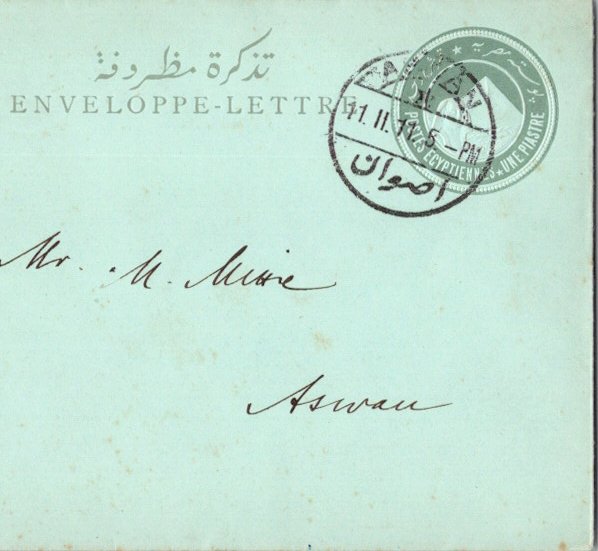 تذكرة مظروفة
ENVELOPPE-LETTRE
بوسته مصرية
POSTES EGYPTIENNES ★ UNE PIASTRE
11.II.11. 5 -PM
اصوان
Mr. M.
Aswan